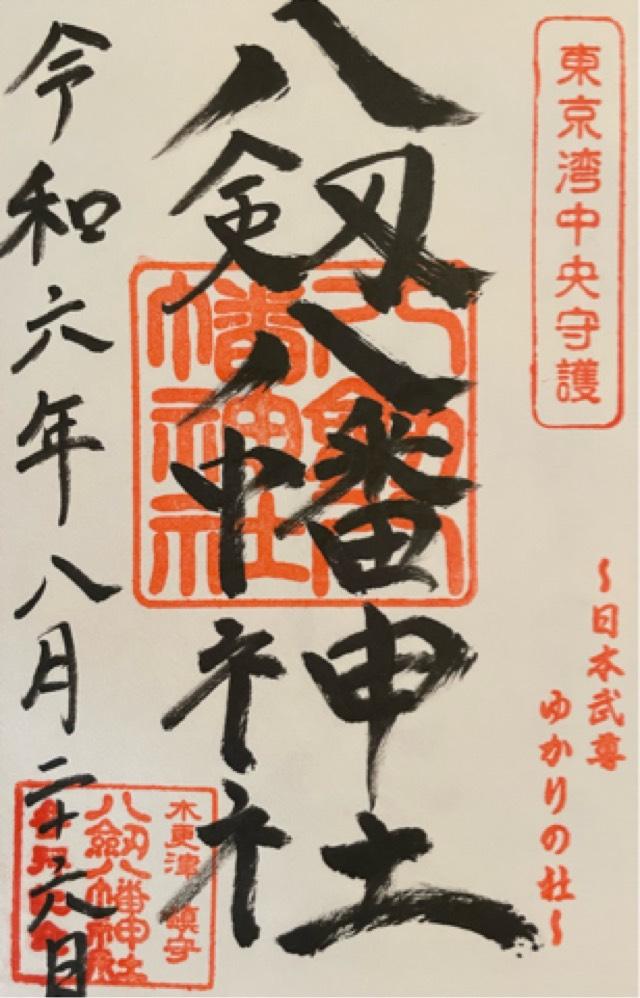 東京湾中央守護
～日本武尊
ゆかりの社～
八剱八幡神社
八剱八
幡神社
令和六年八月二十六日
木更津 鎮守
八剱八幡神社